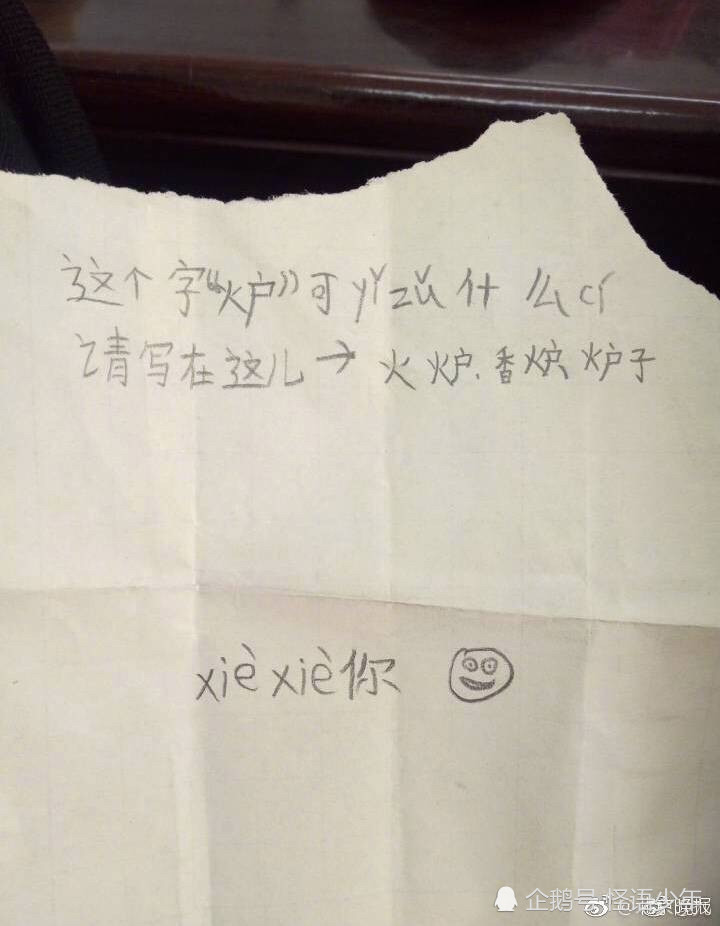 这个字“炉”可yǐzǔ什么cí
请写在这儿→火炉、香炉、炉子
xièxiè你
企鹅号 怪语少年